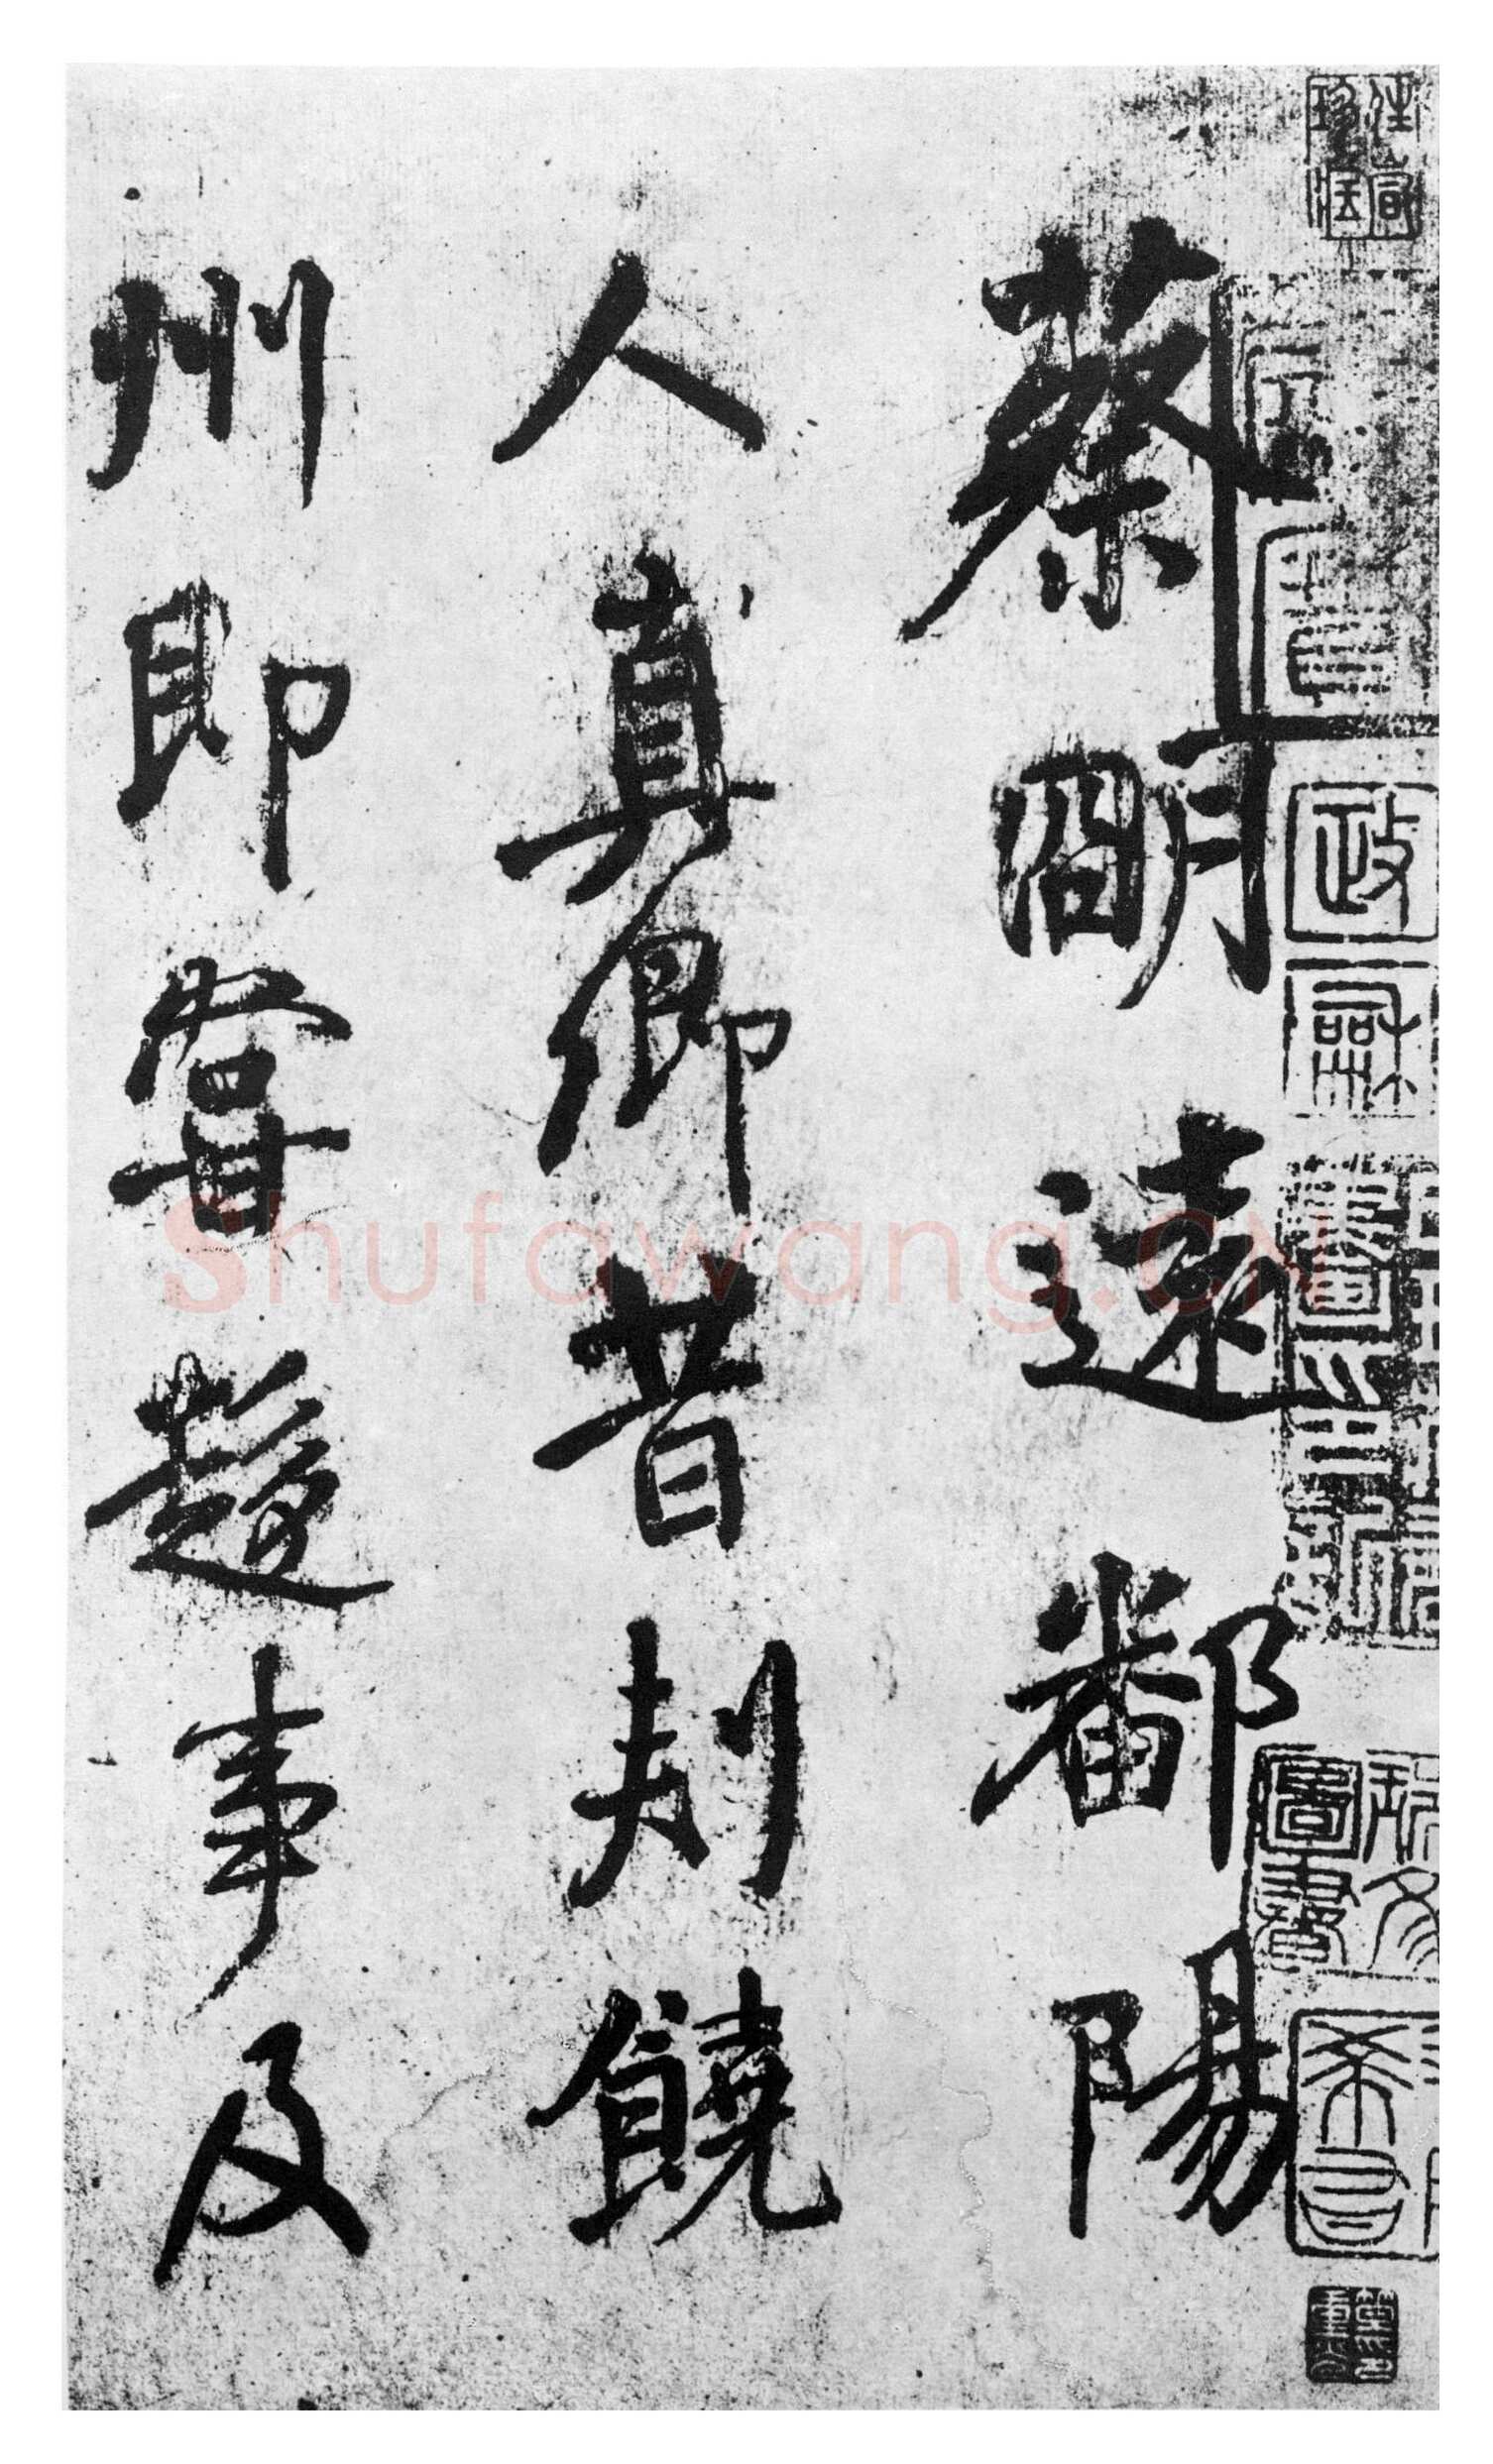 蔡明遠鄱陽
人真卿昔刾饒
州即甞趍事及
政
龢
Shufawang.CN